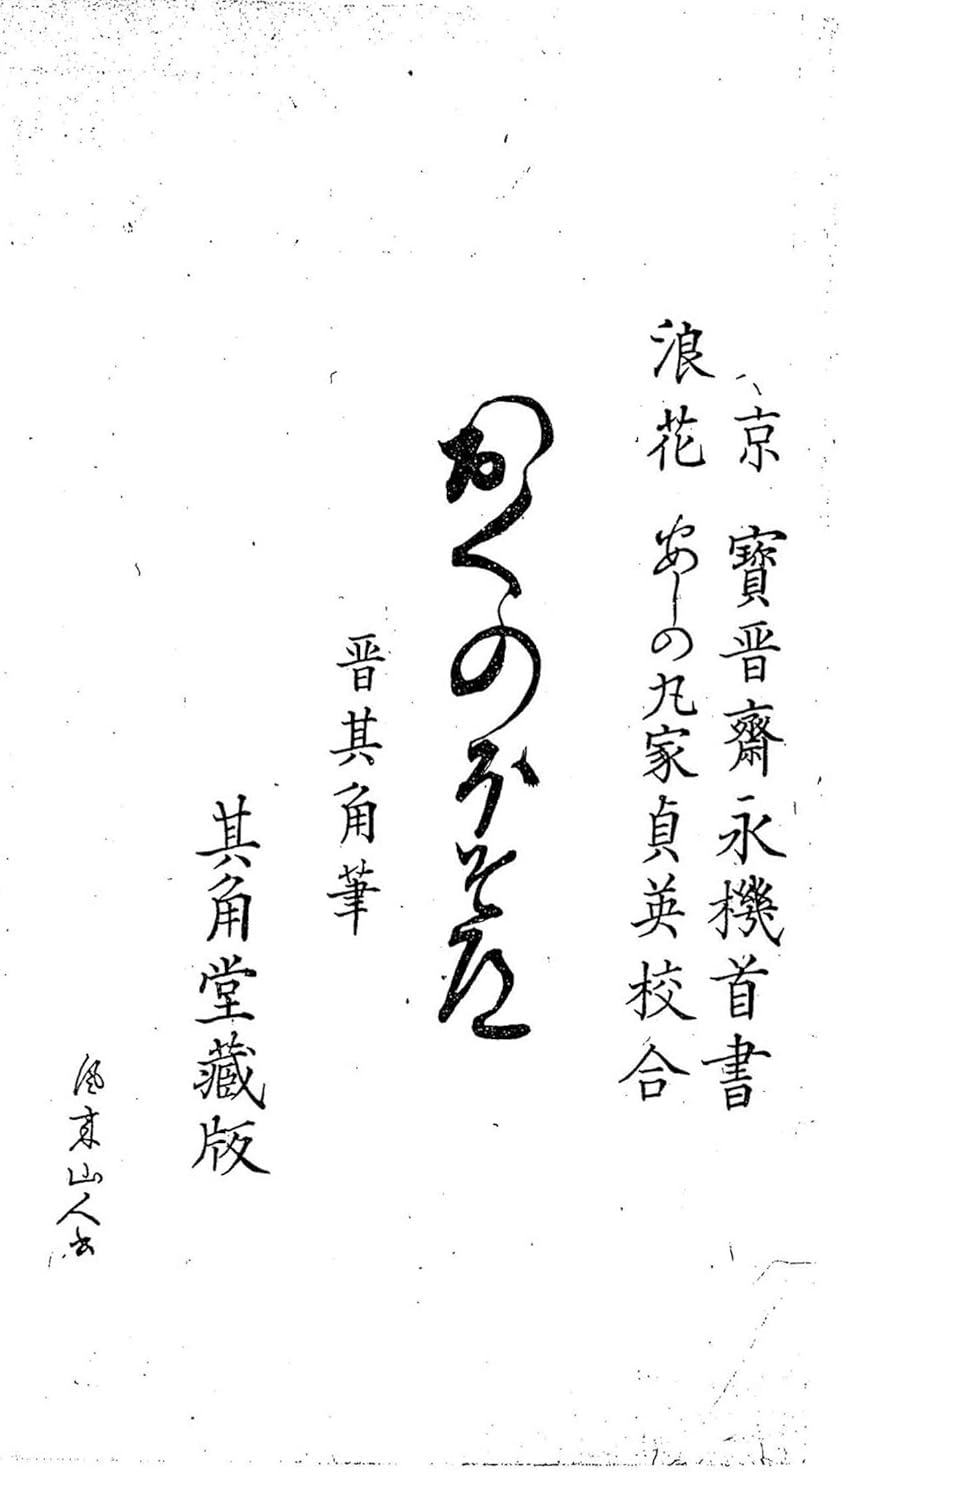 京 寶晋齋永機首書
浪花 安しの丸家貞英校合
おくのほそ道
晋其角筆
其角堂藏版
風来山人書